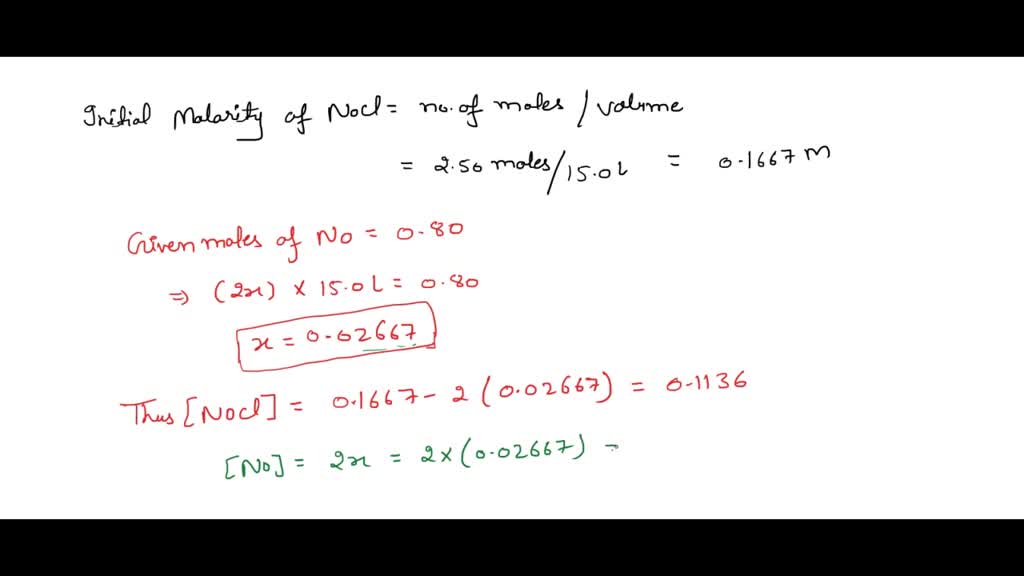 Initial Molarity of NoCl = no. of moles / volume
= 2.50 moles/15.0L = 0.1667 M
Given moles of No = 0.80
⇒ (2x) × 15.0 L = 0.80
x = 0.02667
Thus [NoCl] = 0.1667 - 2 (0.02667) = 0.1136
[No] = 2x = 2×(0.02667) =